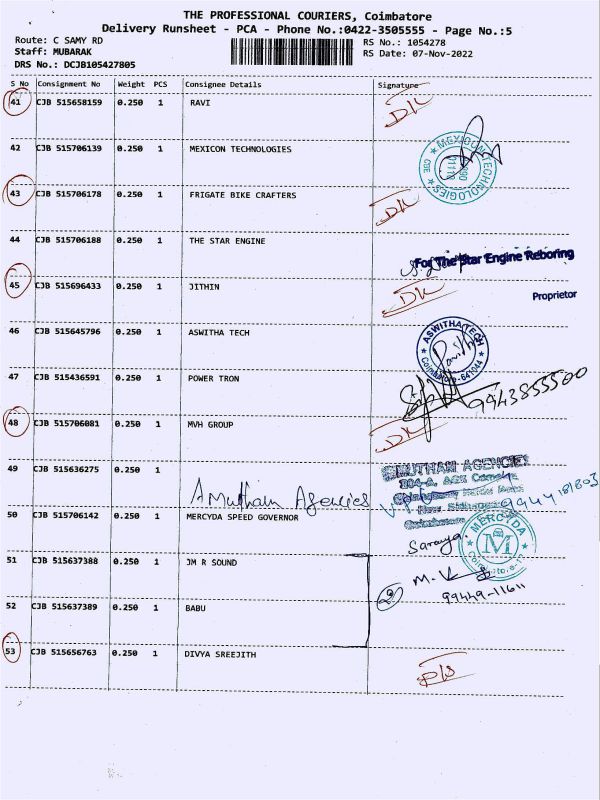 THE PROFESSIONAL COURIERS, Coimbatore
Delivery Runsheet - PCA - Phone No.:0422-3505555 - Page No.:5
Route: C SAMY RD RS No.: 1054278
Staff: MUBARAK RS Date: 07-Nov-2022
DRS No.: DCJB105427805
S No Consignment No Weight PCS Consignee Details Signature
41 CJB 515658159 0.250 1 RAVI
42 CJB 515706139 0.250 1 MEXICON TECHNOLOGIES
MEXICON TECHNOLOGIES
CBE
43 CJB 515706178 0.250 1 FRIGATE BIKE CRAFTERS
44 CJB 515706188 0.250 1 THE STAR ENGINE
For The Star Engine Reboring
45 CJB 515696433 0.250 1 JITHIN
Proprietor
46 CJB 515645796 0.250 1 ASWITHA TECH
ASWITHA TECH
Coimbatore-641044
47 CJB 515436591 0.250 1 POWER TRON
9943855500
48 CJB 515706081 0.250 1 MVH GROUP
49 CJB 515636275 0.250 1
Amutham Agencies
AMUTHAM AGENCIES
50 CJB 515706142 0.250 1 MERCYDA SPEED GOVERNOR
MERCYDA
M
Saranya
51 CJB 515637388 0.250 1 JM R SOUND
M.V
2
99449-11611
52 CJB 515637389 0.250 1 BABU
53 CJB 515656763 0.250 1 DIVYA SREEJITH